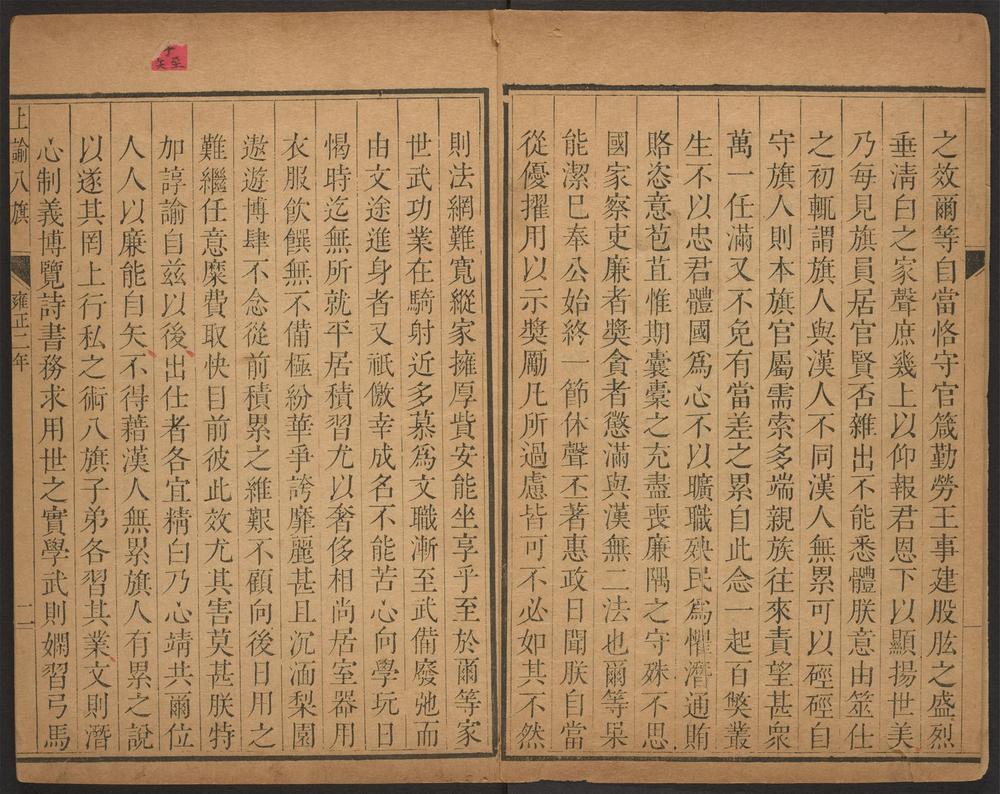 之效爾等自當恪守官箴勤勞王事建股肱之盛烈
垂淸白之家聲庶幾上以仰報君恩下以顯揚世美
乃每見旗員居官賢否雜出不能悉體朕意由筮仕
之初輒謂旗人與漢人不同漢人無累可以硜硜自
守旗人則本旗官屬需索多端親族往來責望甚衆
萬一任滿又不免有當差之累自此念一起百獘叢
生不以忠君體國爲心不以曠職殃民爲懼濳通賄
賂恣意苞苴惟期囊橐之充盡喪廉隅之守殊不思
國家察吏廉者獎貪者懲滿與漢無二法也爾等杲
能潔巳奉公始終一節休聲丕著惠政日聞朕自當
從優擢用以示獎勵凡所過慮皆可不必如其不然
則法網難寬縱家擁厚貲安能坐享乎至於爾等家
世武功業在騎射近多慕爲文職漸至武備廢弛而
由文途進身者又祇儌幸成名不能苦心向學玩日
愒時迄無所就平居積習尤以奢侈相尚居室器用
衣服飮饌無不備極紛華爭誇靡麗甚且沉湎梨園
遨遊博肆不念從前積累之維艱不顧向後日用之
難繼任意糜費取快目前彼此效尤其害莫甚朕特
加諄諭自兹以後出仕者各宜精白乃心靖共爾位
人人以廉能自矢不得藉漢人無累旗人有累之說
以遂其罔上行私之術八旗子弟各習其業文則濳
心制義博覽詩書務求用世之實學武則嫻習弓馬
上諭八旗
雍正二年
二